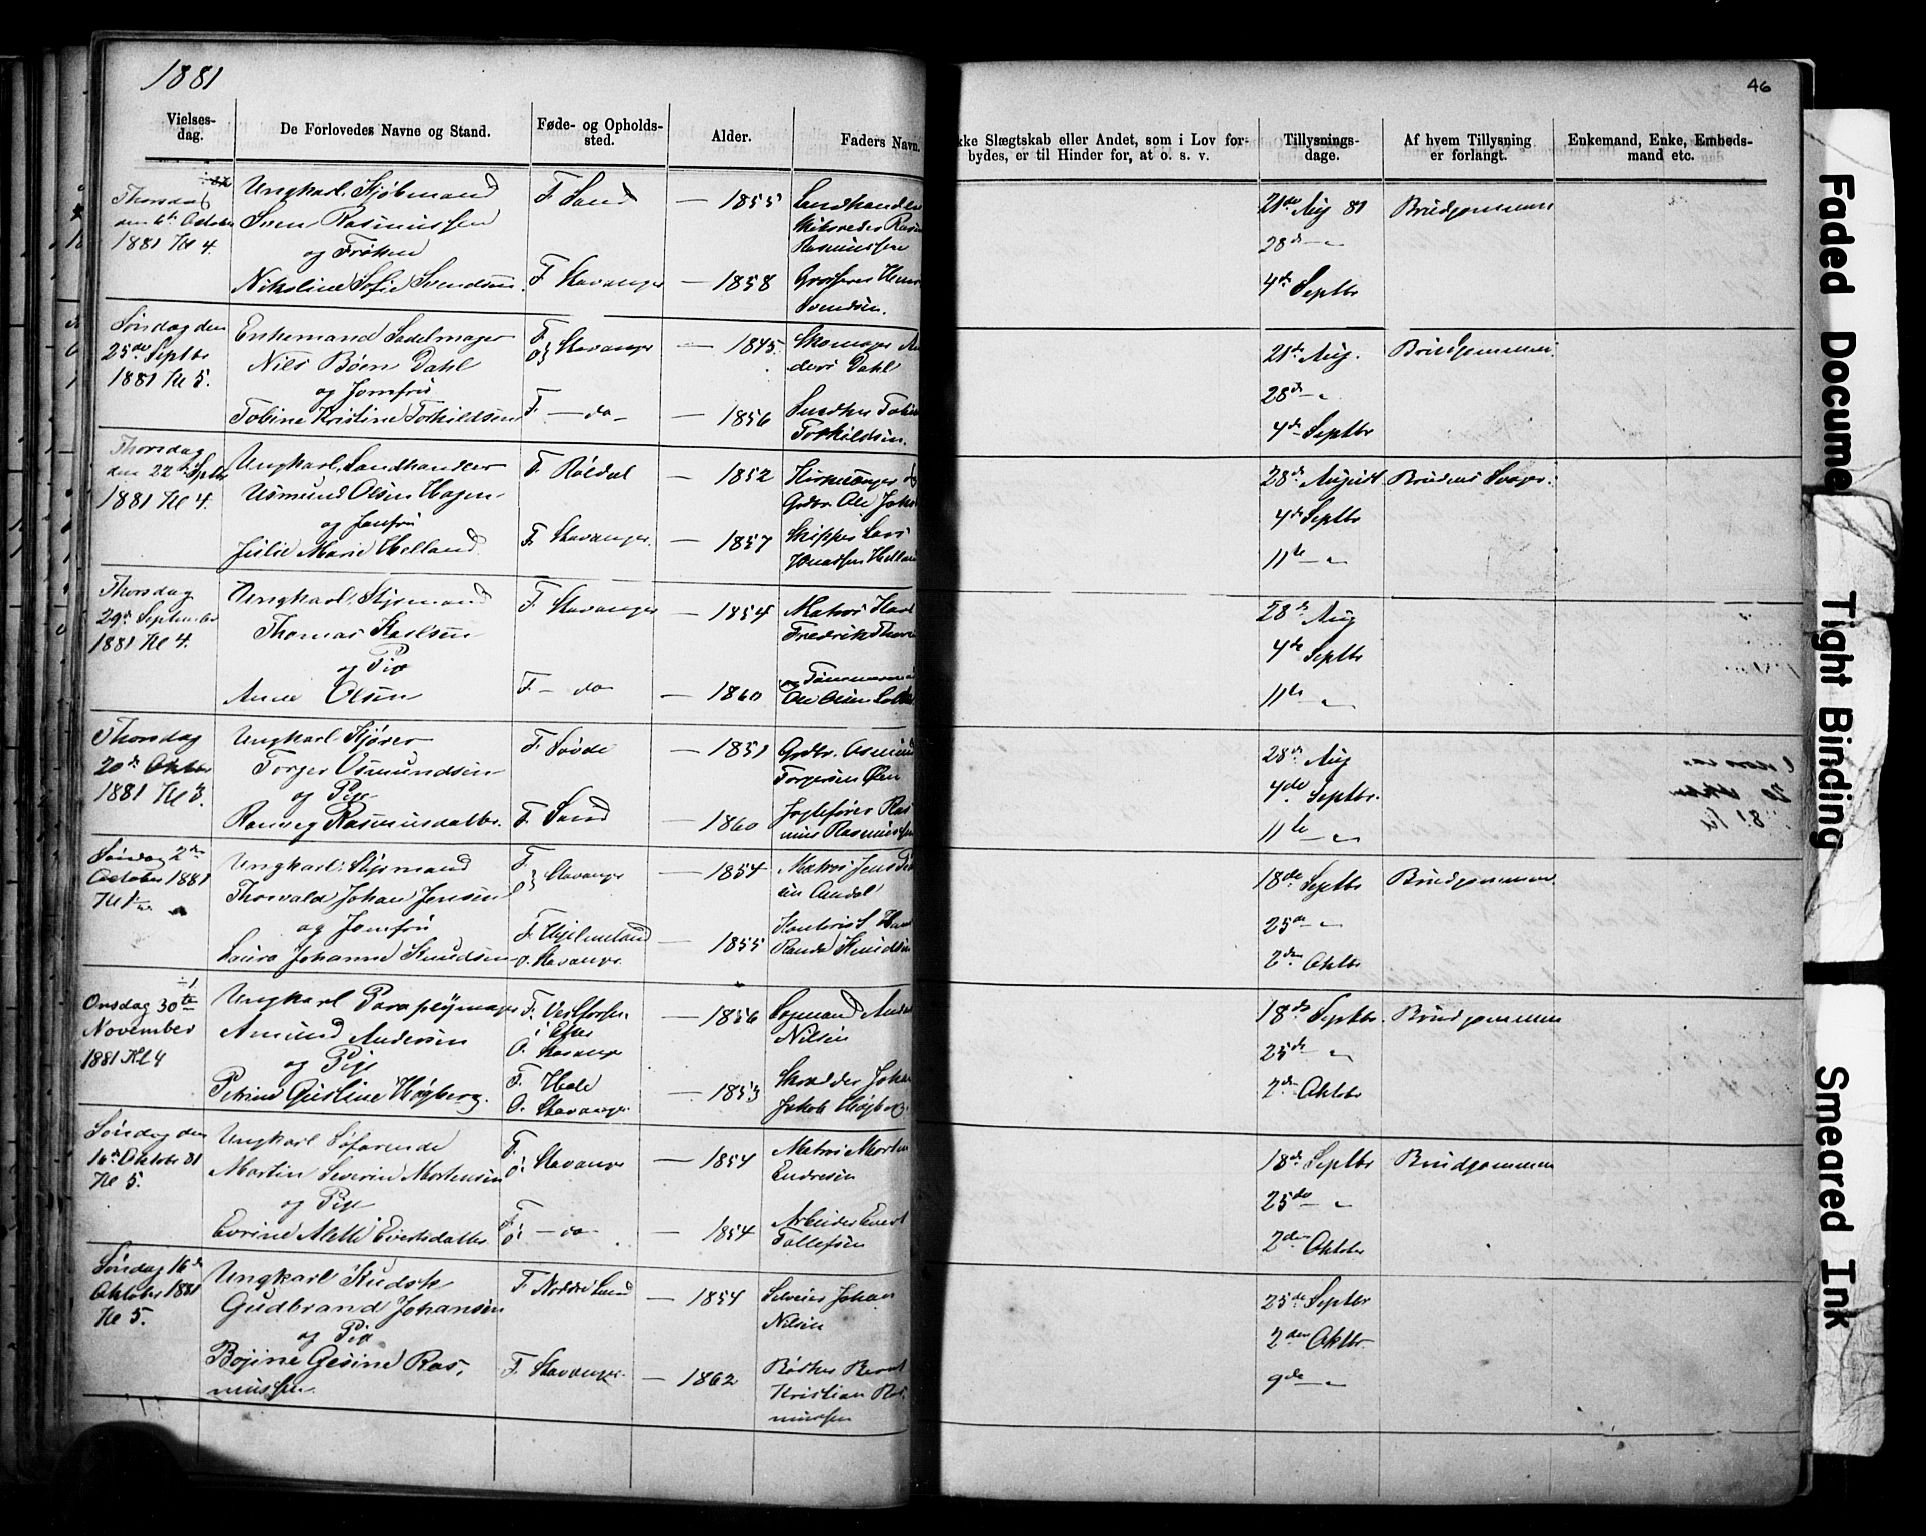 1881
46
Vielses-
dag.
De Forlovedes Navne og Stand.
Føde- og Opholds-
sted.
Alder.
Faders Navn.
kke Slægtskab eller Andet, som i Lov for-
bydes, er til Hinder for, at o. s. v.
Tillysnings-
dage.
Af hvem Tillysning
er forlangt.
Enkemand, Enke, Embeds-
mand etc.
Thorsdag
den 6te October
1881 Kl 4.
Ungkarl, Kjøbmand
Sven Rasmussen
og Frøken
Nikoline Sofie Svendsen.
F. Sand
F. Stavanger
— 1855
— 1858
Landhandler
Rasmussen
Grosserer
Svendsen.
21de Aug 81
28de — "
4de Septbr
Brudgommen
Søndag den
25de Septbr
1881 Kl 5.
Enkemand Sadelmager
Nils Bøen Dahl
og Jomfru
Tobine Kristine Torkildsen
F.
O. Stavanger
F. — do —
— 1845.
— 1856
Skomager
ders Dahl
Torkildsen.
21de Aug.
28de — "
4de Septbr
Brudgommen.
Thorsdag
den 22de Septbr
1881 Kl 4.
Ungkarl, Landhandler
Osmund Olsen Hagen
og Jomfru
Julie Marie Helland
F. Røldal
F. Stavanger.
— 1852
— 1857
Kirkesanger og
Gdbr. Ole
Skipper Lars
Knudsen Hellan
28de August
4de Septbr
11te — "
Brudens Svoger.
Thorsdag
29de September
1881 Kl 4.
Ungkarl, Styrmand
Thomas Karlsen
og Pige
Anna Olsen
F. Stavanger
F. — do
— 1854
— 1860
Matros Karl
Fredrik
Tømmermand
Ole Olsen
28de Aug
4de Septbr
11te — "
Thorsdag
20de Oktbr
1881 Kl 3.
Ungkarl Skjører
Torger Osmundsen
og Pige
Ranveg Rasmusdatter.
F. Sovde
F. Sand
— 1851
— 1860
Gdbr. Osmund
Torgersen Øen
Ras
mus Rasmussen
28de Aug
4de Septbr.
11te — "
Søndag 2de
October 1881
Ungkarl, Styrmand
Thorvald Johan Jensen
og Jomfru
Laura Johanne Knudsen
F.
O. Stavanger
F. Hjelmeland
O. Stavanger
— 1854
— 1855
Matros Jens
Knudsen
18de Septbr
25de — "
2den Oktbr
Brudgommen.
Onsdag 30te
November
1881 Kl 4
Ungkarl Paraplymager
Amund Andersen
og Pige
Petrine Gustine Høyberg.
O. Stavanger
F. Hole
O. Stavanger.
— 1856
— 1853
Nilsen
Skrædder Johan
Jakob Høyberg.
18de Septbr.
25de — "
2den Oktober
Brudgommen
Søndag den
16de Oktober 81
Kl 5.
Ungkarl Søfarende
Martin Severin Mortensen
og Pige
Evrine Alette Evertsdatter
F.
O. Stavanger
F.
O. — do
— 1854
— 1854
Matros Morten
Endresen
Arbeider Evert
Tollefsen
18de Septbr
25de — "
2den Oktober
Brudgommen
Søndag 16de
Oktober 1881
Kl 5.
Ungkarl Kudsk
Gudbrand Johansen
og Pige
Bojine Gesine Ras-
mussen
F. Nordre Land
F. Stavanger.
— 1854
— 1862
Selveier Johan
Nilsen
Bødker Bernt
Kristian Ras-
mussen
25de Septbr
2den Oktbr.
9de — "
Faded Docume
Tight Binding
Smeared Ink